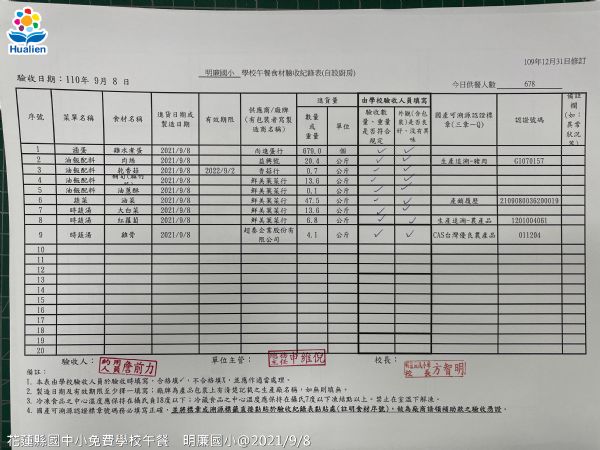 Hualien
109年12月31日修訂
明廉國小 學校午餐食材驗收紀錄表(自設廚房)
驗收日期：110年 9月 8 日
今日供餐人數 678
序號 菜單名稱 食材名稱 進貨日期或製造日期 有效期限 供應商/廠牌(有包裝者寫製造商名稱) 進貨量 由學校驗收人員填寫 國產可溯源認證標章(三章一Q) 認證號碼 備註欄(如:異常狀況等)
數量或重量 單位 驗收數量、重量是否符合規定 外觀(含包裝)是否良好、沒有異味
1 滷蛋 雞水煮蛋 2021/9/8 尚進蛋行 679.0 個 ✓ ✓
2 油飯配料 肉絲 2021/9/8 益興號 20.4 公斤 ✓ ✓ 生產追溯-豬肉 G1070157
3 油飯配料 乾香菇 2021/9/8 2022/9/2 香菇行 0.7 公斤 ✓ ✓
4 油飯配料 2021/9/8 鮮美菓菜行 13.6 公斤 ✓ ✓
5 油飯配料 油蔥酥 2021/9/8 鮮美菓菜行 0.1 公斤 ✓ ✓
6 蔬菜 油菜 2021/9/8 鮮美菓菜行 47.5 公斤 ✓ ✓ 產銷履歷 2109080036200019
7 時蔬湯 大白菜 2021/9/8 鮮美菓菜行 13.6 公斤 ✓ ✓
8 時蔬湯 紅蘿蔔 2021/9/8 鮮美菓菜行 6.8 公斤 ✓ ✓ 生產追溯-農產品 1201004061
9 時蔬湯 雞骨 2021/9/8 超秦企業股份有限公司 4.1 公斤 ✓ ✓ CAS台灣優良農產品 011204
10
11
12
13
14
15
16
17
18
19
20
驗收人： 約用人員 詹前力 單位主管： 總務主任 申維倪 校長： 校長 方智明
備註：
1. 本表由學校驗收人員於驗收時填寫，合格填✓，不合格填X，並應作適當處理。
2. 製造日期及有效期限至少擇一填寫，廠牌為產品包裝上有清楚記載之生產廠名稱，如無則填無。
3. 冷凍食品之中心溫度應保持在攝氏負18度以下；冷藏食品之中心溫度應保持在攝氏7度以下凍結點以上。禁止在室溫下解凍。
4. 國產可溯源認證標章號碼務必填寫正確，並將標章或溯源標籤直接黏貼於驗收紀錄表黏貼處(註明食材序號)，做為廠商請領補助款之驗收憑證。
花蓮縣國中小免費學校午餐 明廉國小@2021/9/8